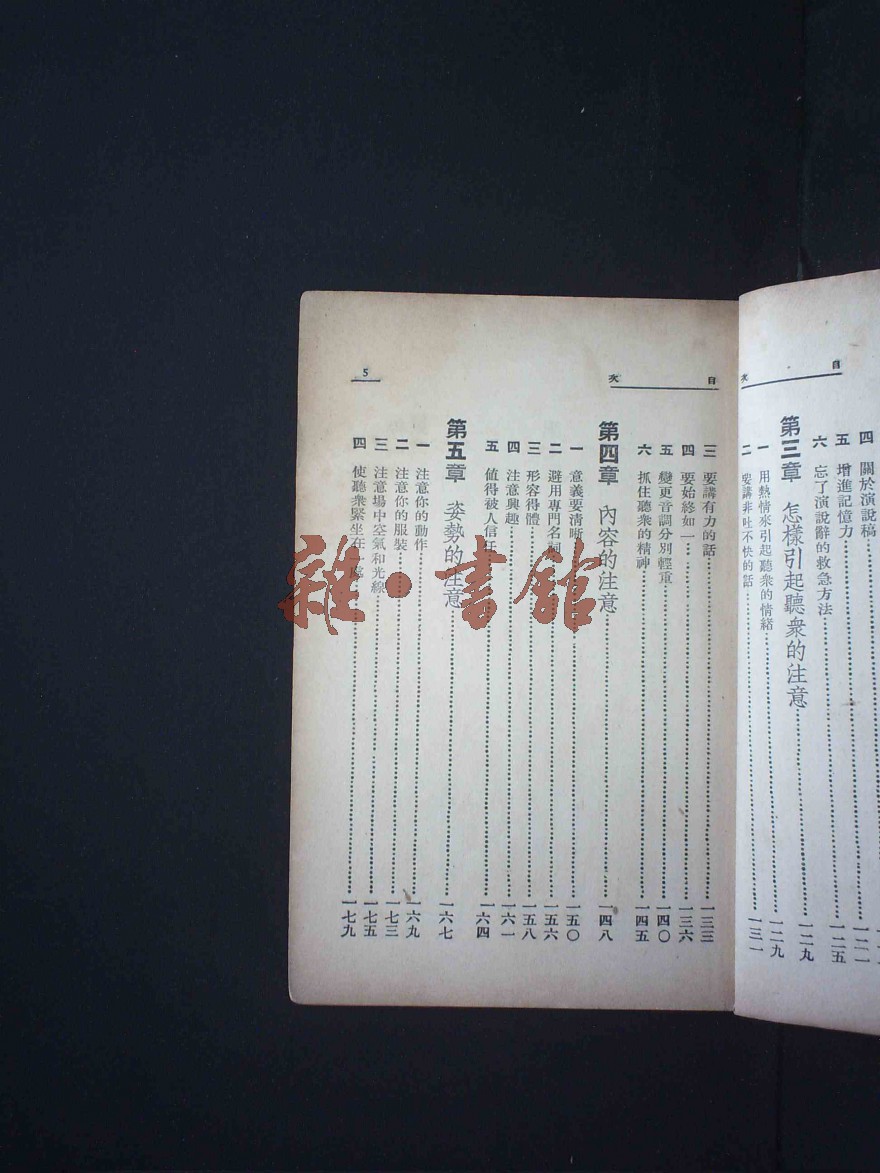 目次
四 關於演說稿……一二一
五 增進記憶力……一二五
六 忘了演說辭的救急方法
第三章 怎樣引起聽衆的注意……一二九
一 用熱情來引起聽衆的情緒……一二九
二 要講非吐不快的話……一三一
目次
三 要講有力的話……一三三
四 要始終如一……一三六
五 變更音調分別輕重……一四〇
六 抓住聽衆的精神……一四五
第四章 內容的注意……一四八
一 意義要清晰……一五〇
二 避用專門名詞……一五六
三 形容得體……一五八
四 注意興趣……一六一
五 値得被人信任……一六四
第五章 姿勢的注意……一六七
一 注意你的動作……一六九
二 注意你的服裝……一七三
三 注意場中空氣和光線……一七五
四 使聽衆緊坐在一處……一七九
5
雜·書館